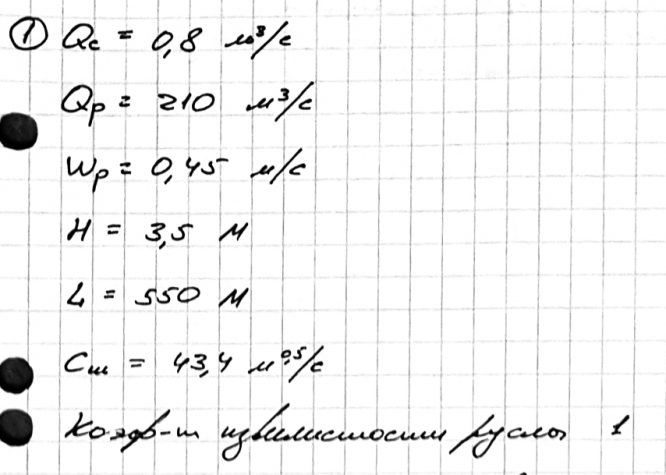 ① Qc = 0,8 м³/с
Qр = 210 м³/с
Wр = 0,45 м/с
H = 3,5 м
L = 550 м
Cш = 43,4 м^0,5/с
Коэф-т извилистости русла 1